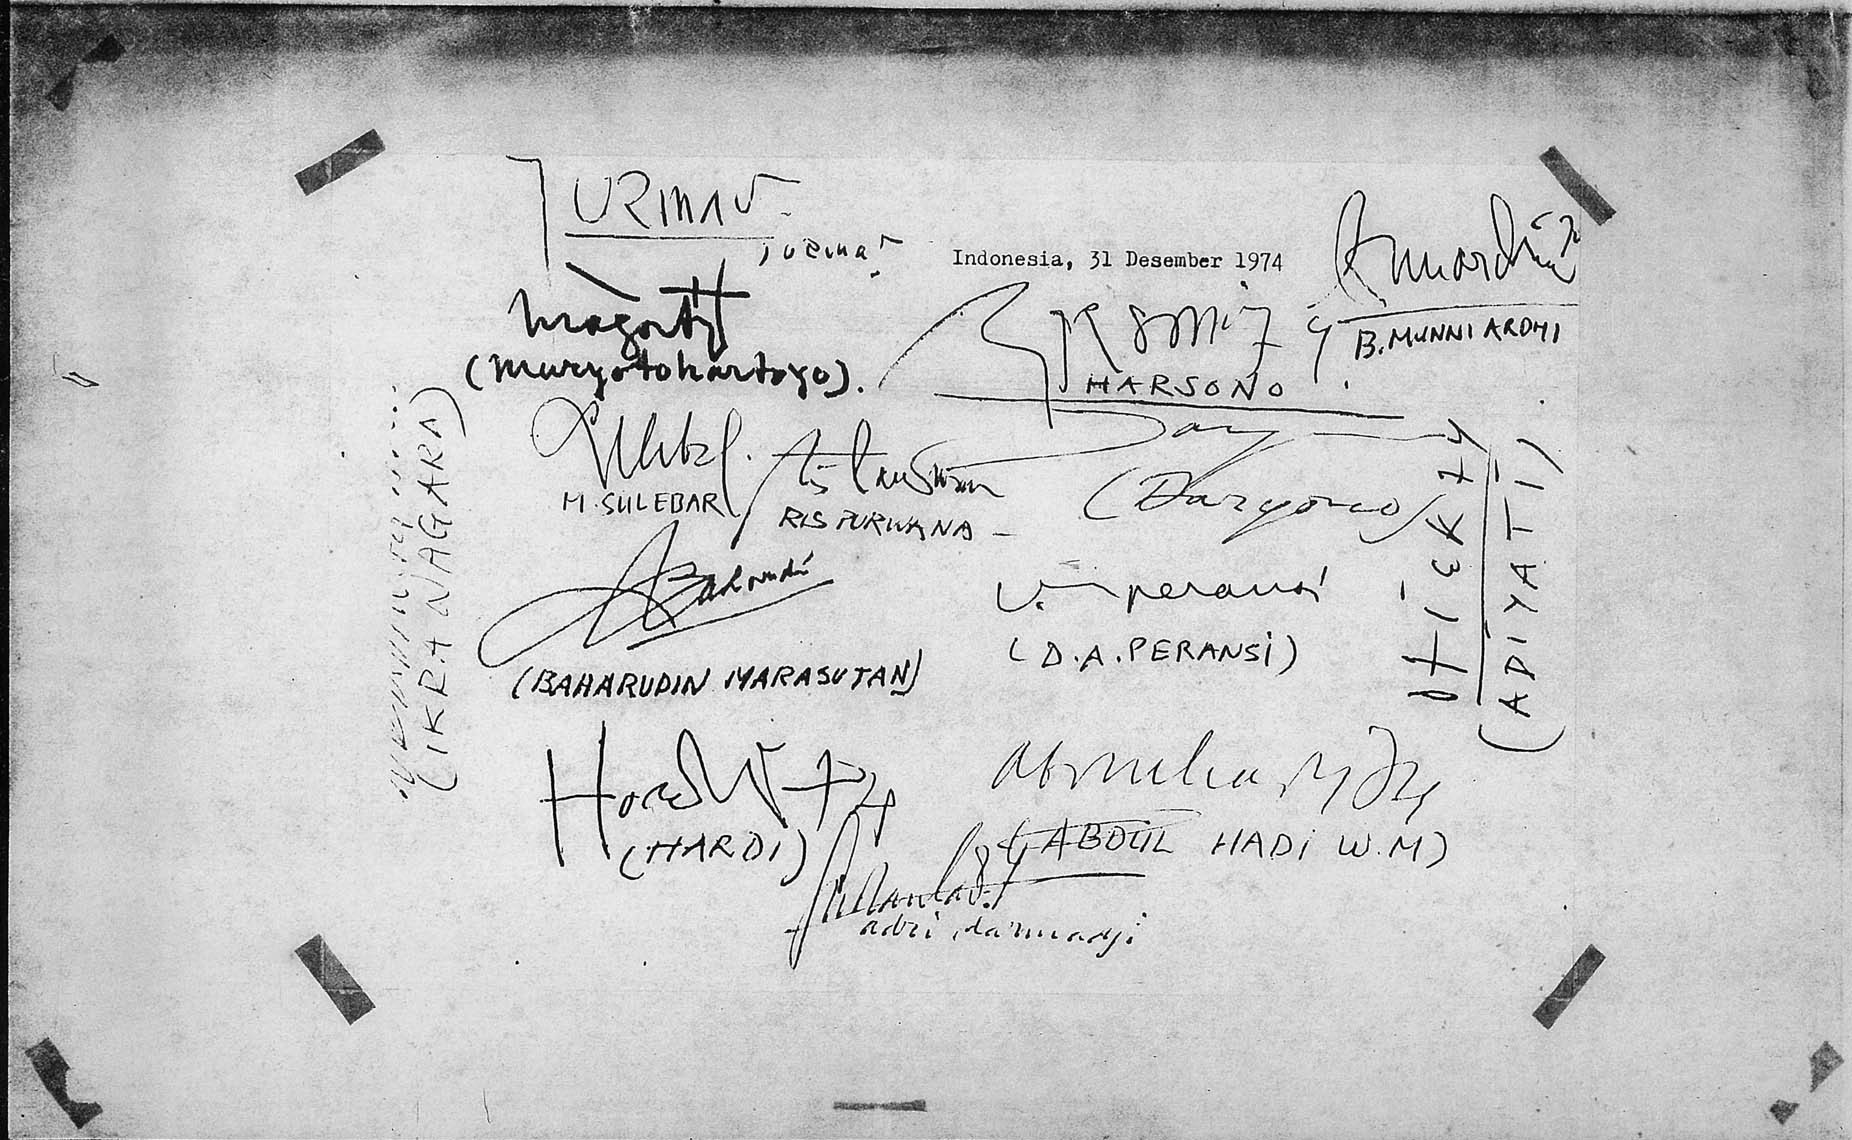 Indonesia, 31 Desember 1974
B. MUNNI ARDHI
(muryotohartoyo).
HARSONO
M. SULEBAR
RIS PURWANA
(Daryono)
(IKRANAGARA)
(ADIYATI)
peransi
(D.A. PERANSI)
(BAHARUDIN MARASUTAN)
(HARDI)
(ABDUL HADI W.M)
adri darmadji